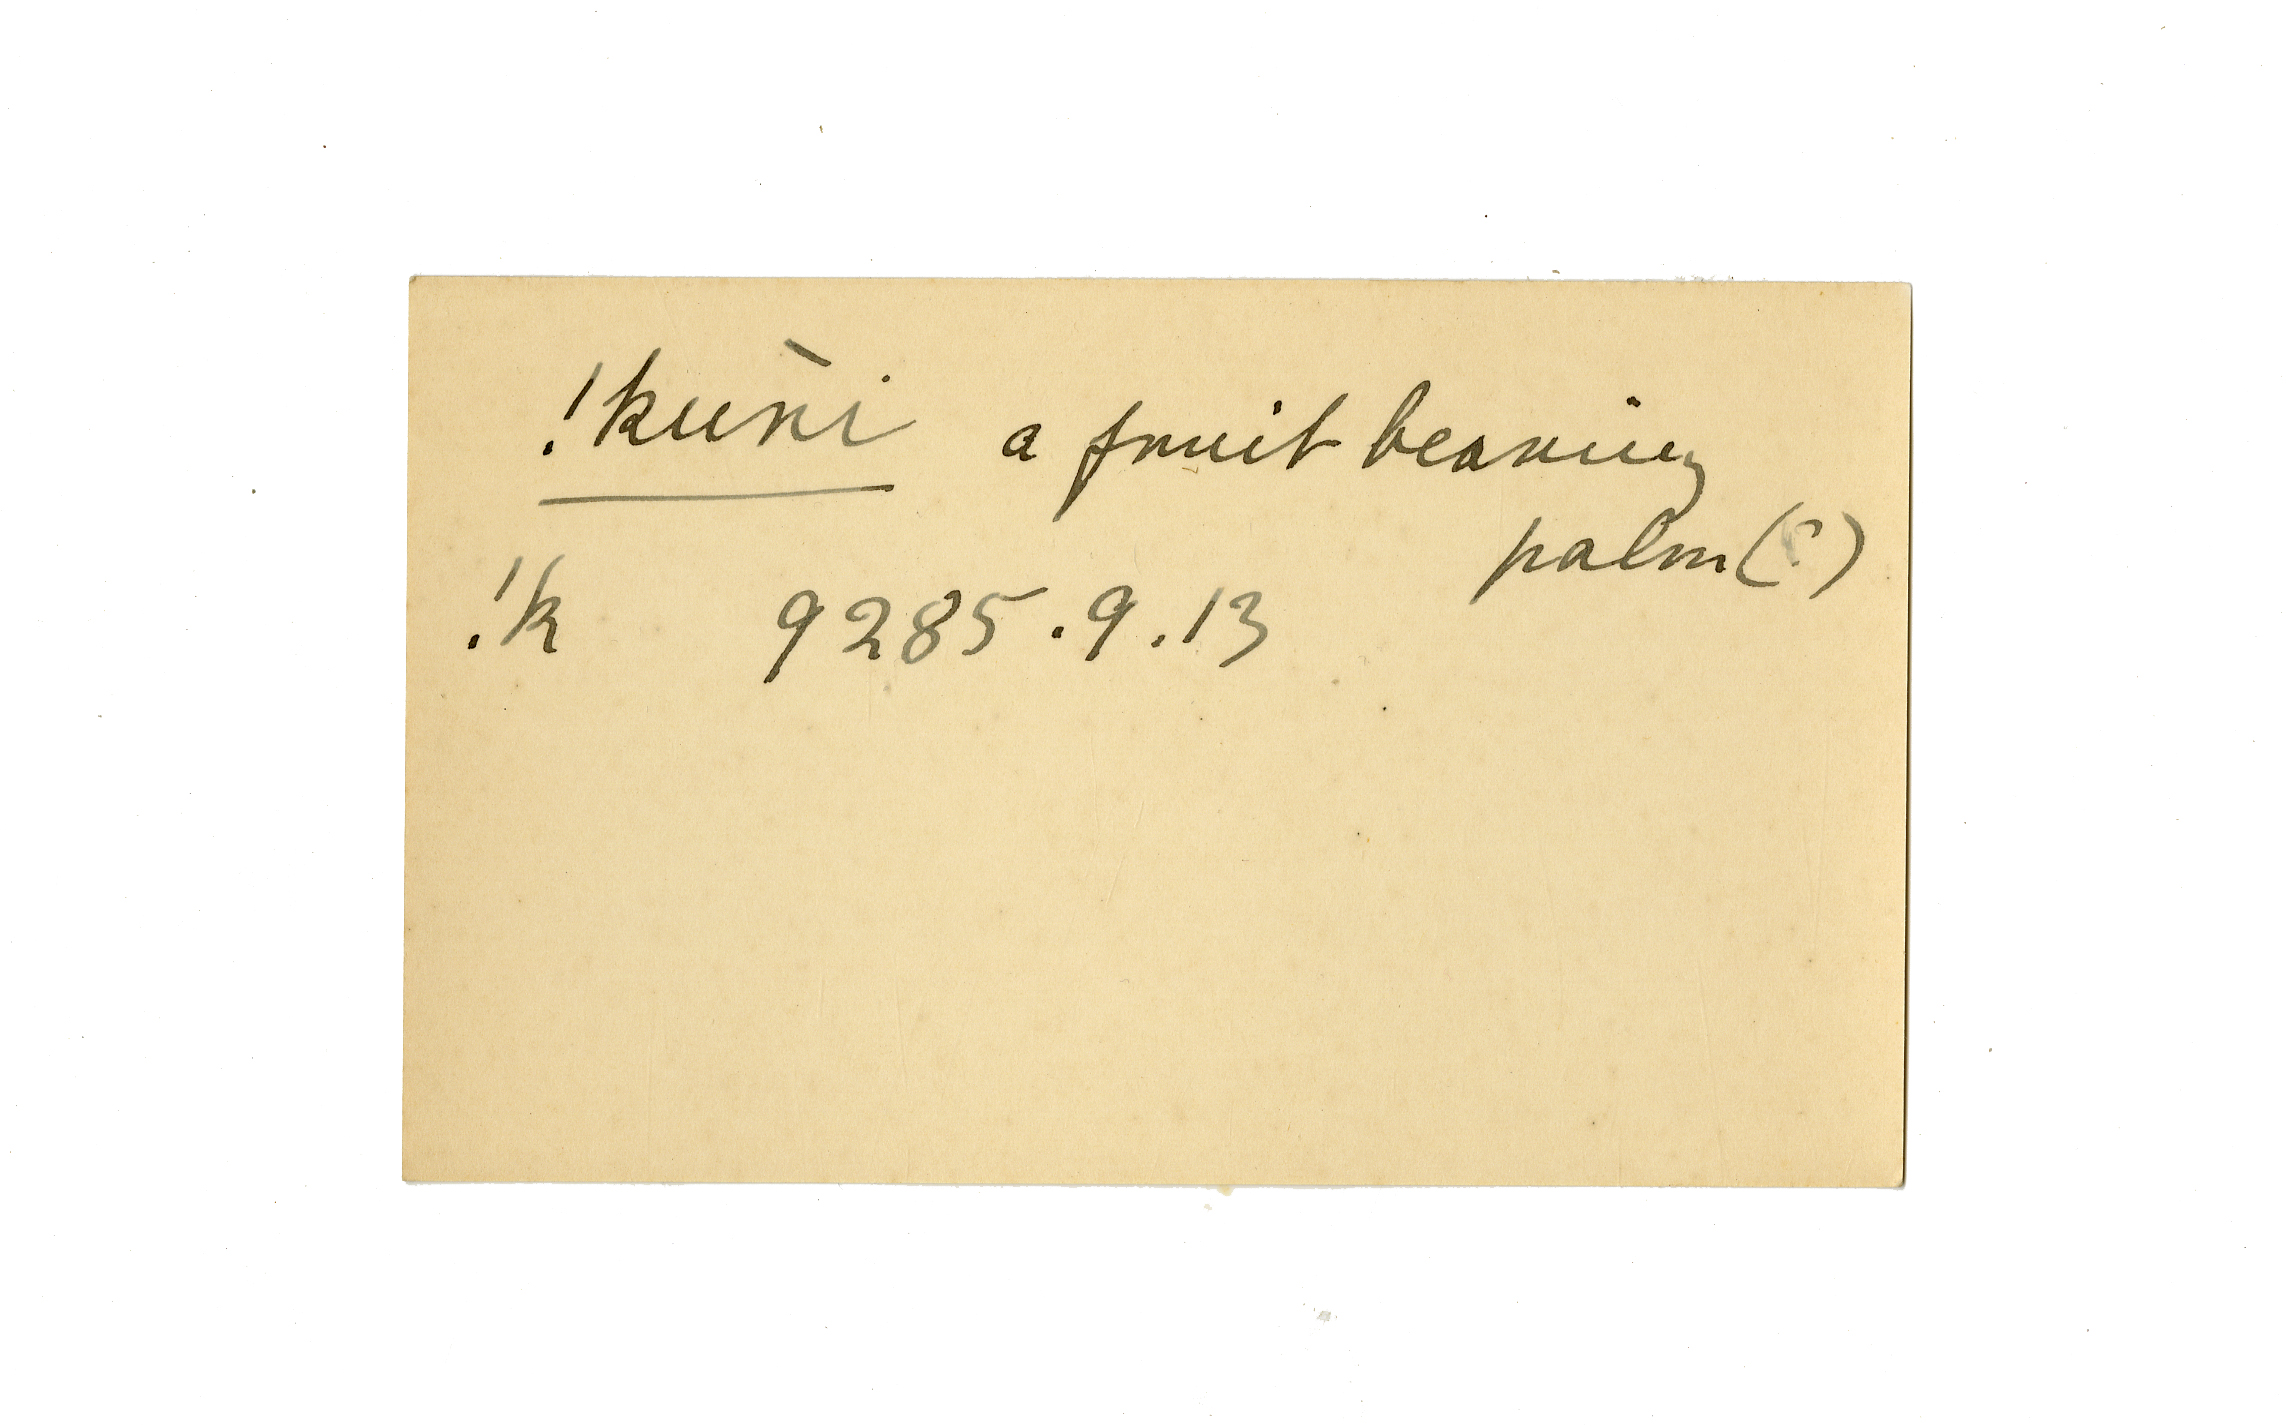 !kuǹi a fruit bearing
palm (?)
!k 9285.9.13